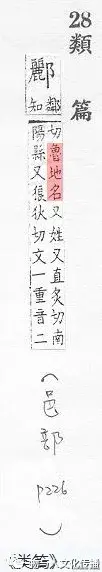 28類篇
酈
鄒知切魯地名又姓又直炙切南
陽縣又狼狄切文一重音二
(邑部
P226)
《类篇》
人文化传播